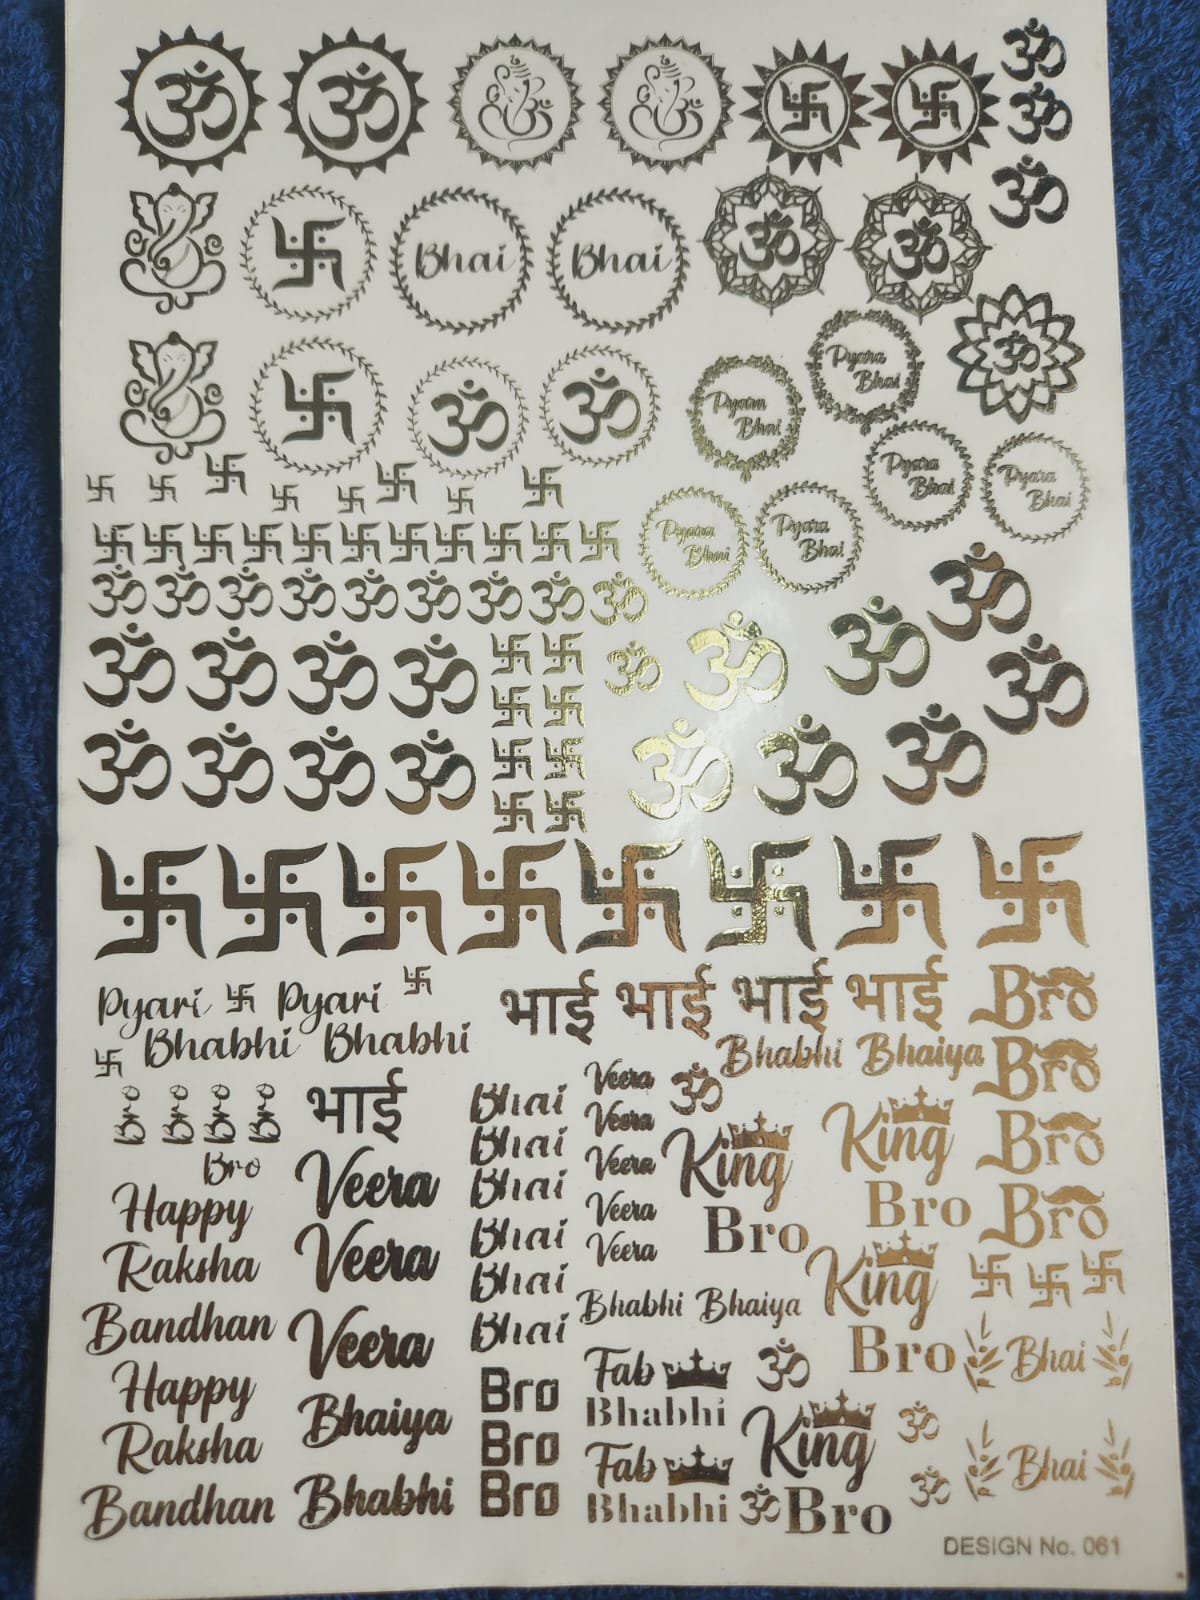 ॐ
ॐ
ॐ
ॐ
ॐ
Bhai
Bhai
ॐ
ॐ
Pyara
Bhai
ॐ
Pyara
Bhai
ॐ
ॐ
Pyara
Bhai
Pyara
Bhai
Pyara
Bhai
Pyara
Bhai
ॐ ॐ ॐ ॐ ॐ ॐ ॐ ॐ ॐ
ॐ
ॐ ॐ ॐ ॐ ॐ ॐ ॐ
ॐ
ॐ ॐ ॐ ॐ ॐ ॐ ॐ
Pyari Pyari
Bhabhi Bhabhi
भाई भाई भाई भाई
Bro
Bhabhi Bhaiya
Bro
Bro
Bro
Bro Bro Bro Bro
Bro
भाई
Happy
Raksha
Bandhan
Happy
Raksha
Bandhan
Veera
Veera
Veera
Bhaiya
Bhabhi
Bhai
Bhai
Bhai
Bhai
Bhai
Bhai
Bro
Bro
Bro
Veera
Veera
Veera
Veera
Veera
ॐ
King
Bro
King
Bro
Bhabhi Bhaiya
King
Bro
Fab
Bhabhi
Fab
Bhabhi
ॐ
King
ॐ Bro
Bhai
ॐ
ॐ
Bhai
DESIGN No. 061